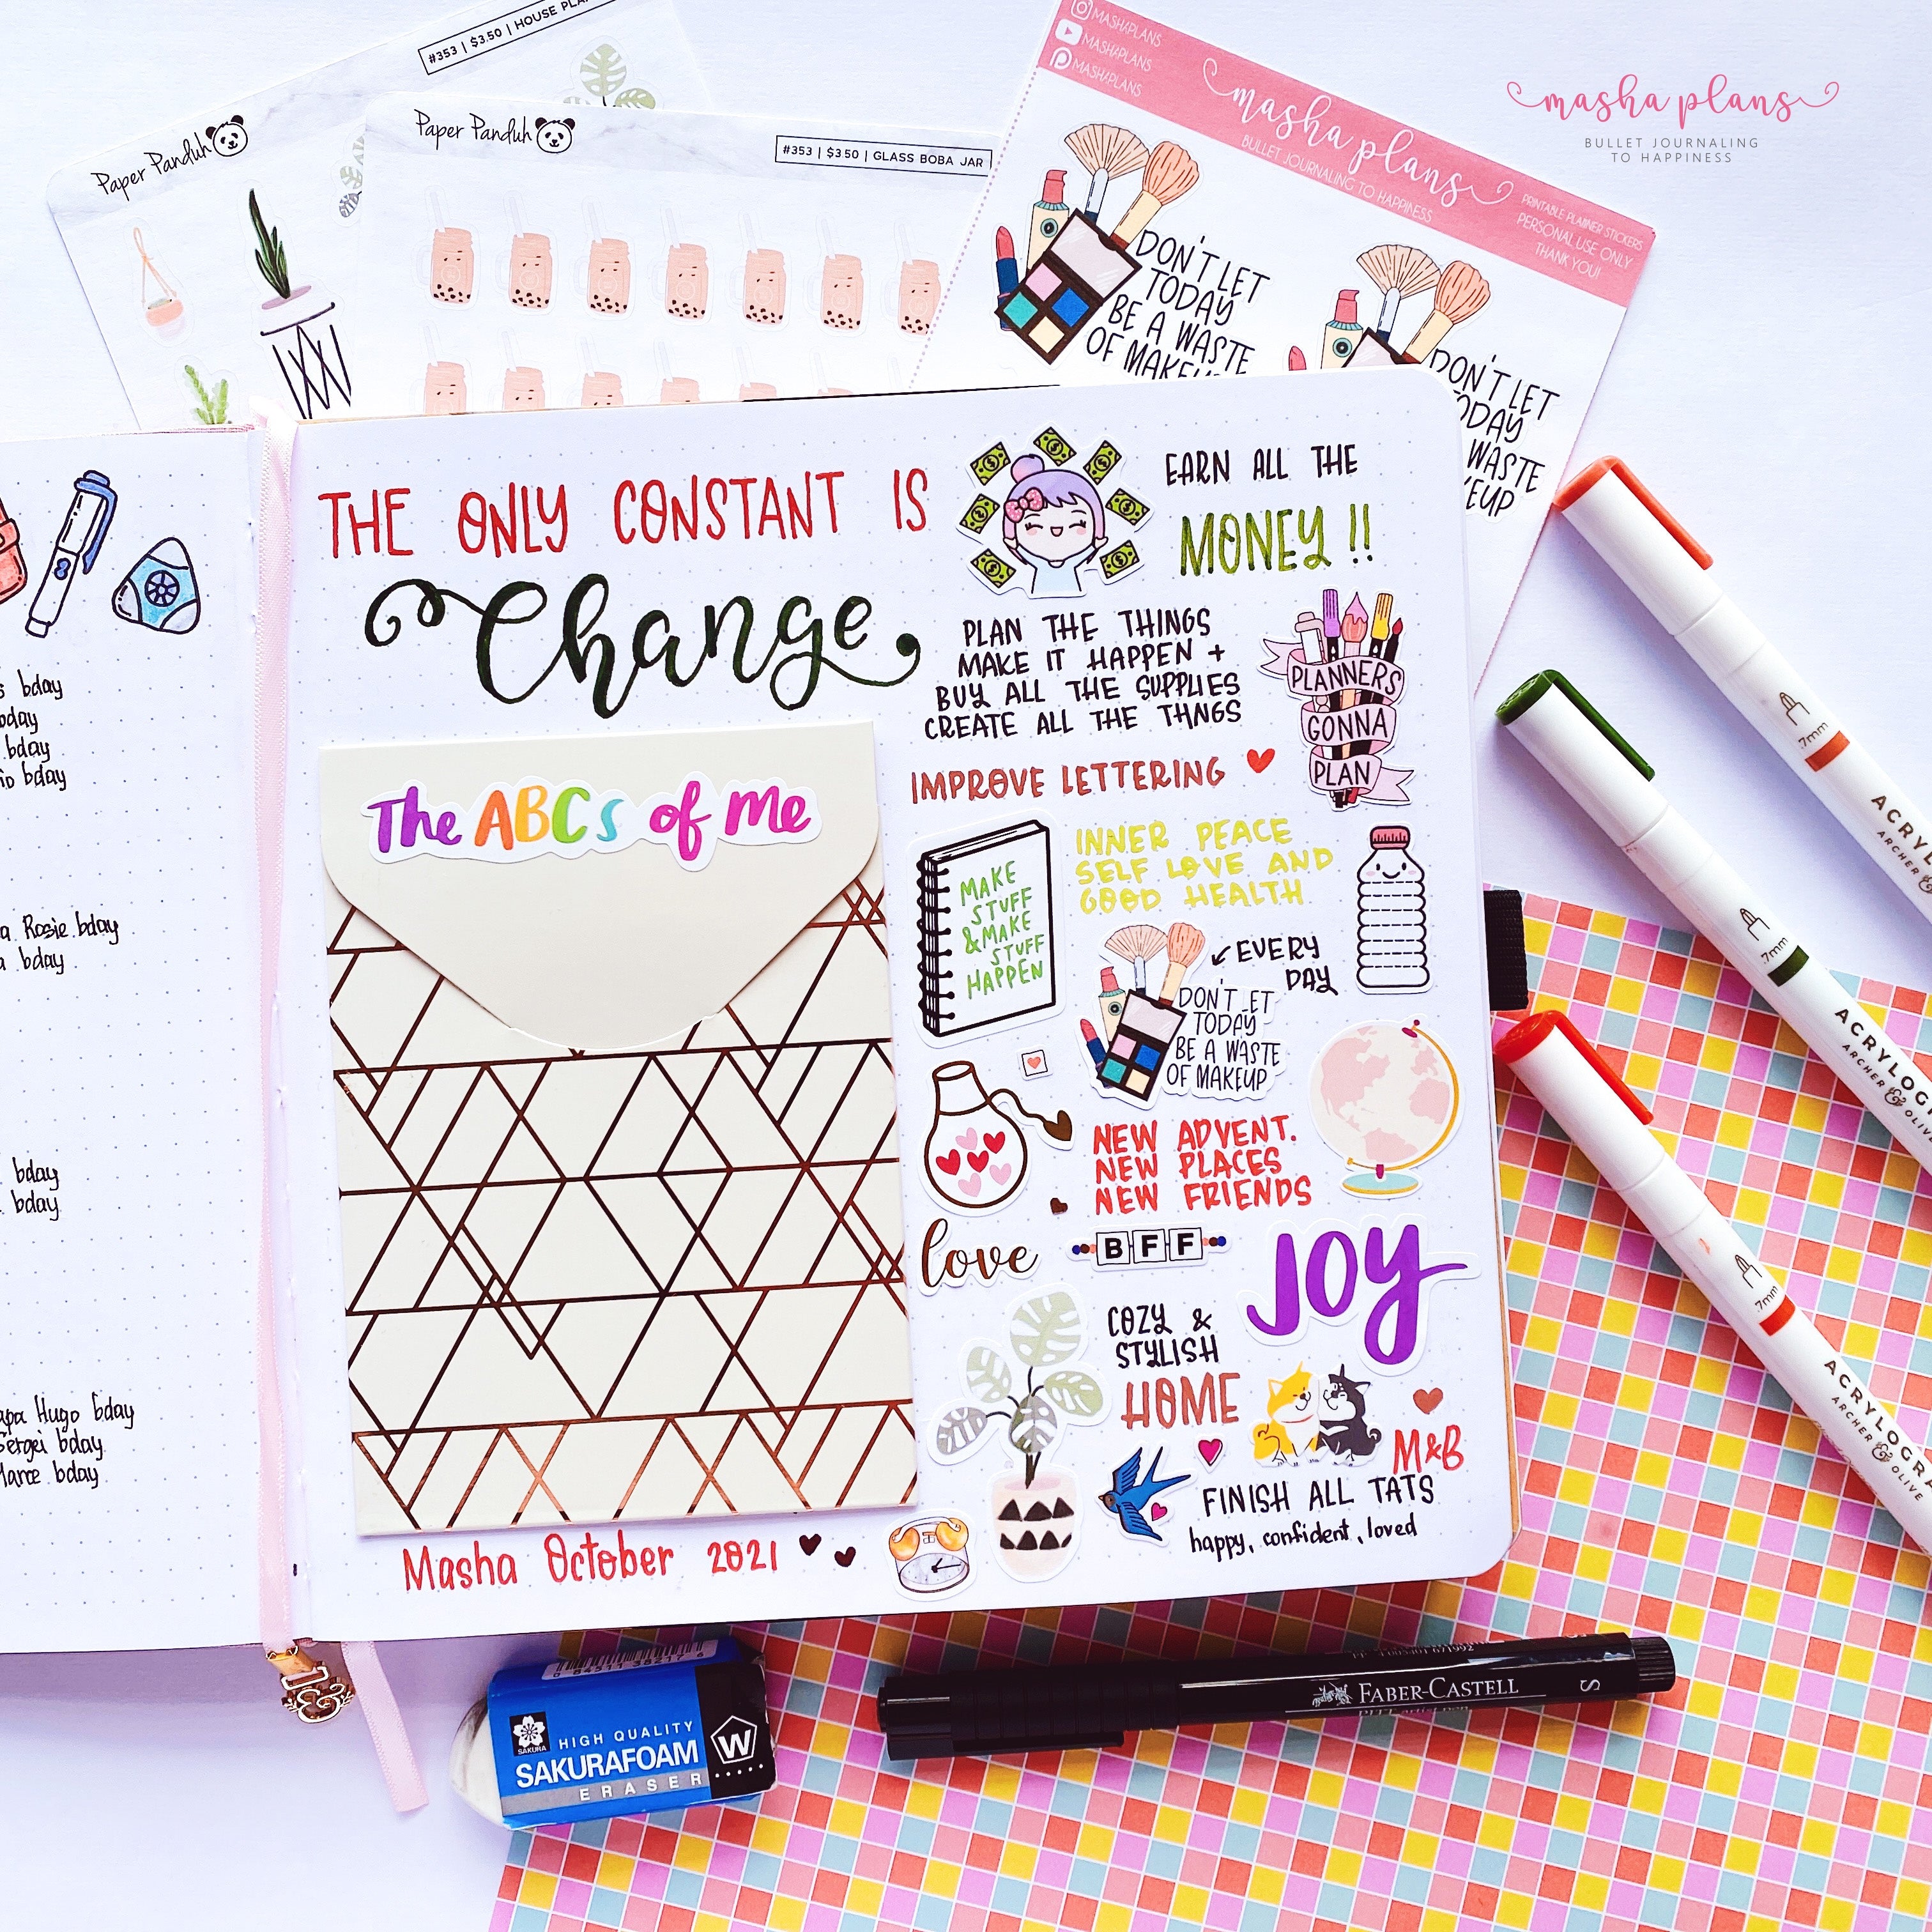 #353 | $3.50 | HOUSE
Paper Panduh
Paper Panduh
#353 | $3.50 | GLASS BOBA JAR
MASHAPLANS
MASHAPLANS
MASHAPLANS
masha plans
BULLET JOURNALING TO HAPPINESS
PRINTABLE PLANNER STICKERS
PERSONAL USE ONLY
THANK YOU!
DON'T LET
TODAY
BE A WASTE
OF
DON'T LET
WASTE
masha plans
BULLET JOURNALING
TO HAPPINESS
bday
bday
bday
Rosie bday
bday
bday
bday
Hugo bday
bday
bday
THE ONLY CONSTANT IS
Change
The ABCs of me
Masha October 2021
EARN ALL THE
MONEY !!
PLAN THE THINGS
MAKE IT HAPPEN +
BUY ALL THE SUPPLIES
CREATE ALL THE THNGS
PLANNERS
GONNA
PLAN
IMPROVE LETTERING
MAKE
STUFF
&MAKE
STUFF
HAPPEN
INNER PEACE
SELF LOVE AND
GOOD HEALTH
EVERY
DAY
DON'T LET
TODAY
BE A WASTE
OF MAKEUP
NEW ADVENT.
NEW PLACES
NEW FRIENDS
love
BFF
JOY
COZY &
STYLISH
HOME
M&B
FINISH ALL TATS
happy, confident, loved
.7mm
ARCHER &
.7mm
ARCHER & OLIVE
.7mm
ARCHER & OLIVE
SAKURA
HIGH QUALITY
SAKURAFOAM
ERASER
W
FABER-CASTELL
S